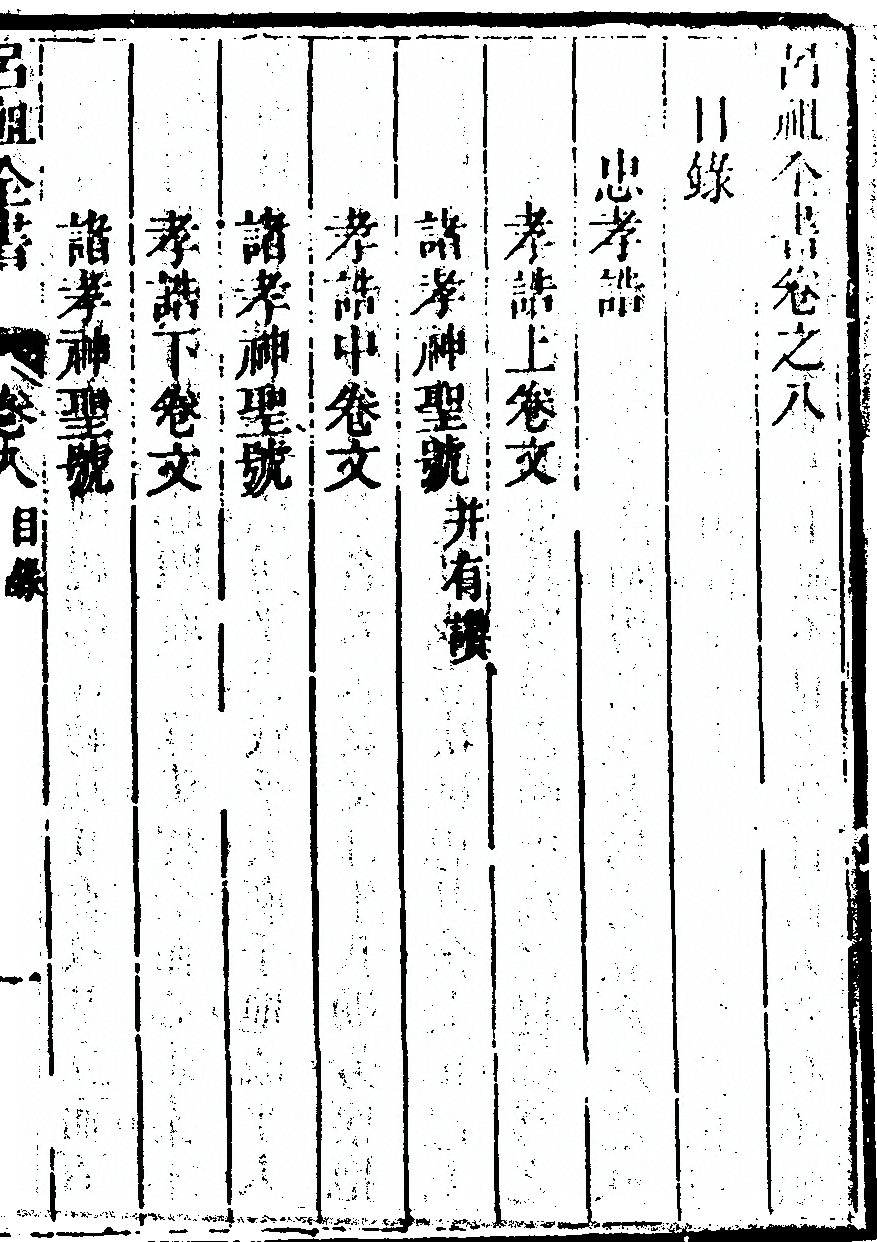 呂祖全書卷之八
目錄
忠孝誥
孝誥上卷文
諸孝神聖號并有讚
孝誥中卷文
諸孝神聖號
孝誥下卷文
諸孝神聖號
呂祖全書 卷八 目錄 一